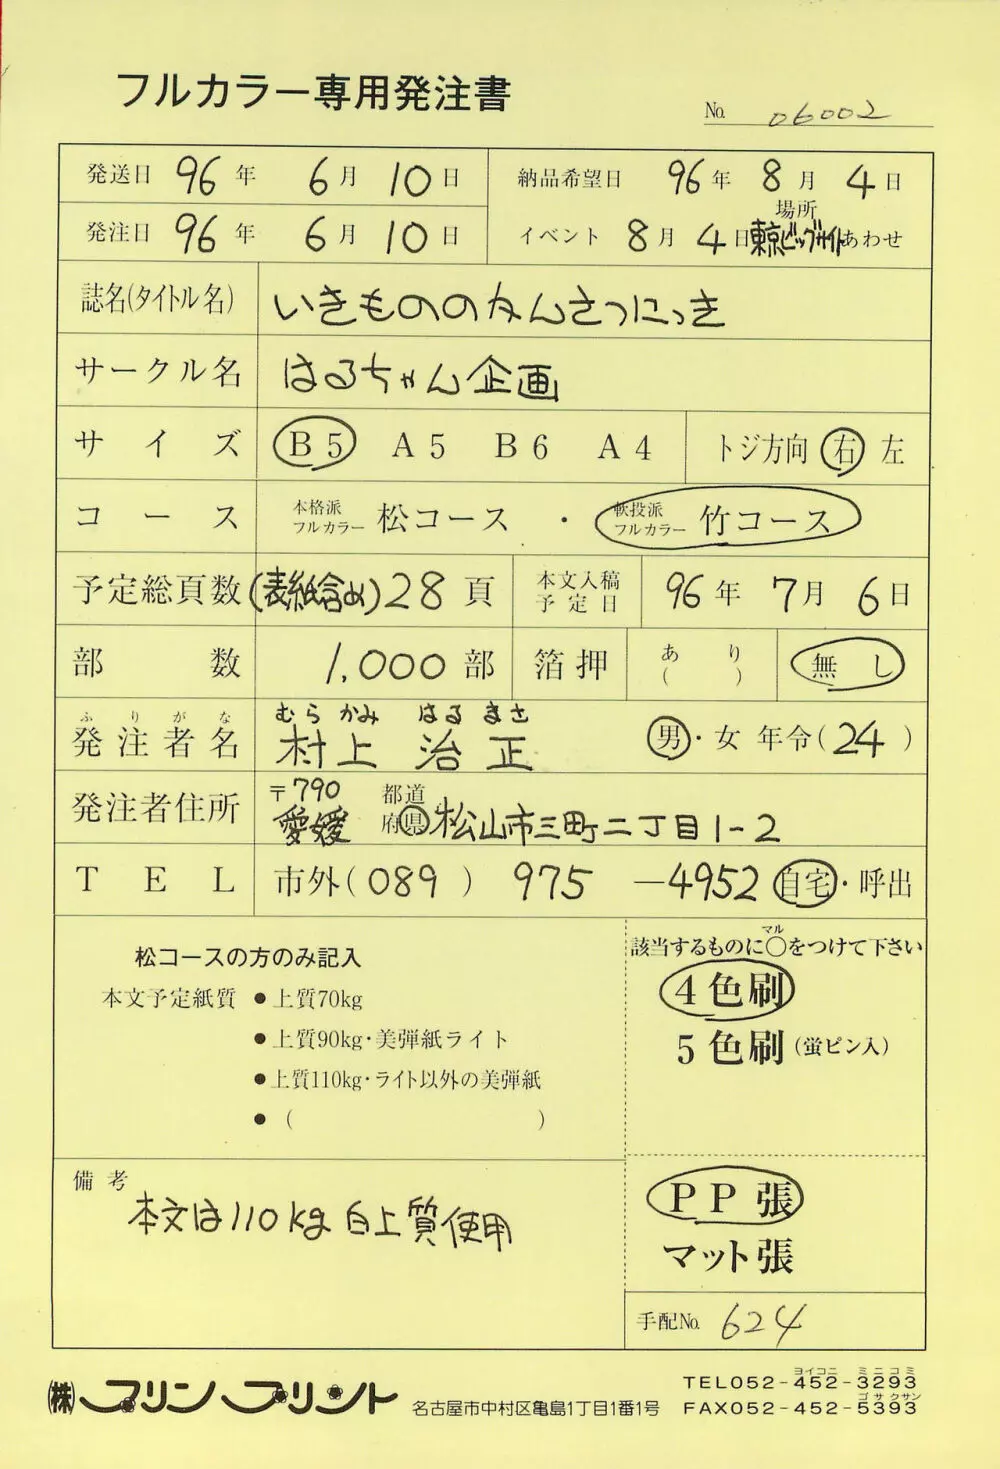 フルカラー専用発注書
No. 06002
発送日 96年 6月 10日
納品希望日 96年 8月 4日
発注日 96年 6月 10日
場所
イベント 8月 4日 東京ビッグサイト あわせ
誌名(タイトル名) いきもののかんさつにっき
サークル名 はるちゃん企画
サイズ B5 A5 B6 A4 トジ方向 右 左
コース 本格派フルカラー 松コース ・ 軟投派フルカラー 竹コース
予定総頁数 (表紙含め) 28頁 本文入稿予定日 96年 7月 6日
部数 1,000部 箔押 あり( ) 無し
ふりがな むらかみ はるまさ
発注者名 村上 治正 男・女 年令(24)
発注者住所 〒790
愛媛 都道府県 松山市三町二丁目1-2
TEL 市外(089) 975 -4952 自宅・呼出
松コースの方のみ記入
本文予定紙質 ●上質70kg
●上質90kg・美弾紙ライト
●上質110kg・ライト以外の美弾紙
●( )
マル
該当するものに○をつけて下さい
4色刷
5色刷(蛍ピン入)
備考
本文は110kg白上質使用
PP張
マット張
手配No. 624
㈱プリンプリント
名古屋市中村区亀島1丁目1番1号
ヨイコニ ミニコミ
TEL052-452-3293
ゴサクサン
FAX052-452-5393